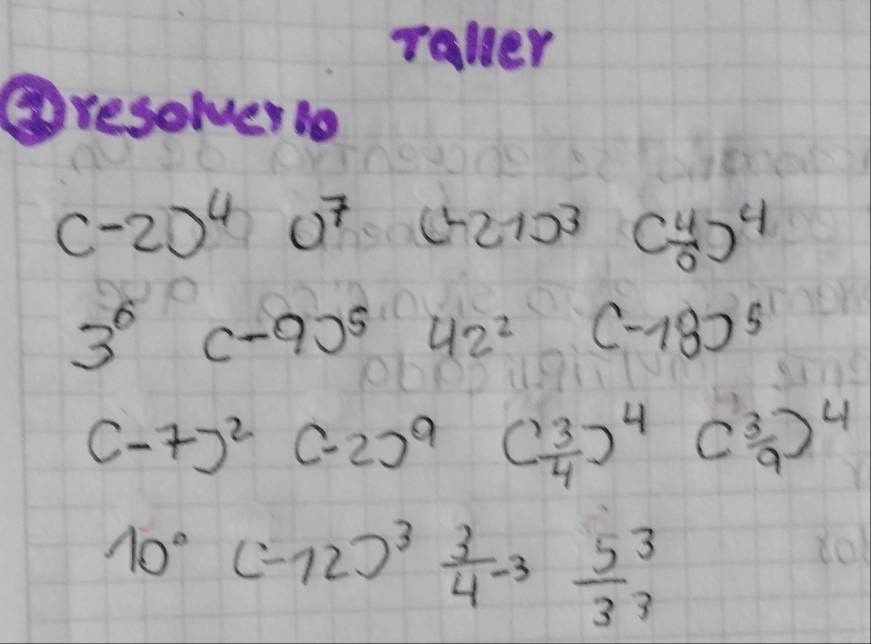 Taller
① resolverlo
(-2)⁴ 0⁷ (-21)³ (4/0)⁴
3⁶ (-9)⁵ 42² (-18)⁵
(-7)² (-2)⁹ (3/4)⁴ (3/9)⁴
10⁰ (-12)³ 3/4-3 5³/3³